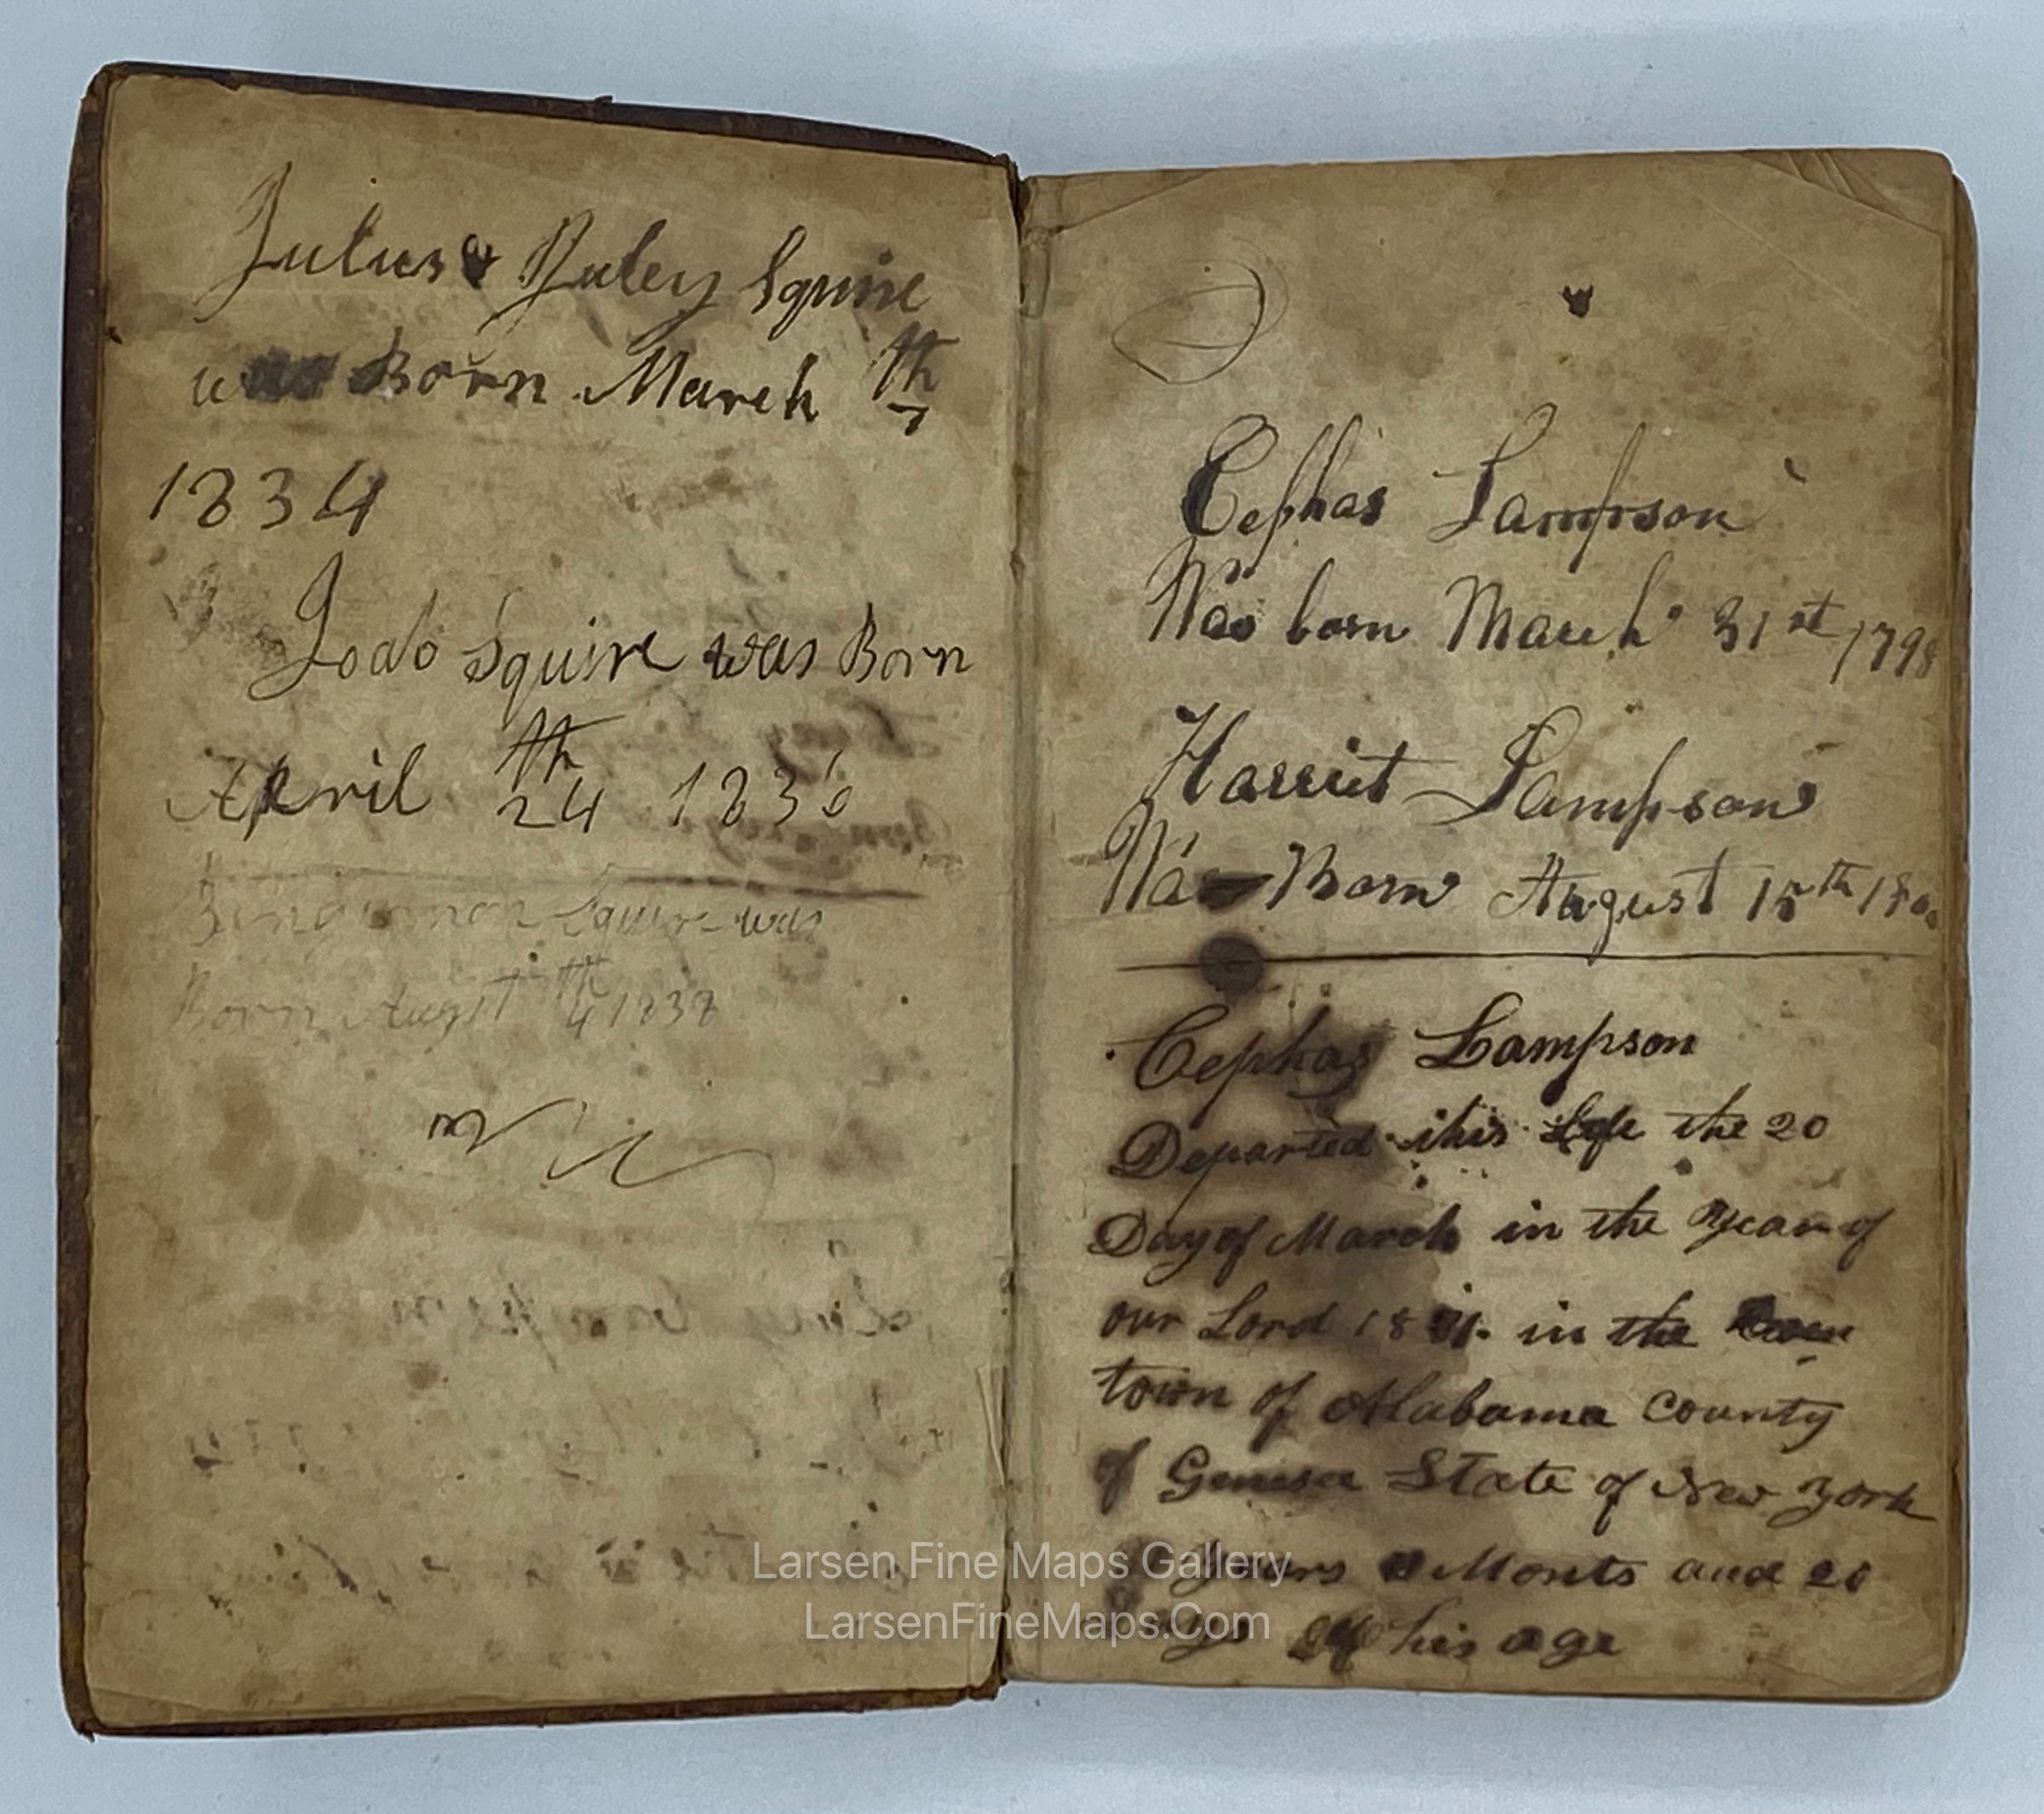 Julius Ruley Squire
was Born March th
7
1834
Squire was Born
April 24 th 1836
Squire was
Born August 4 th 1838
Cephas Lampson
Was born March 31st, 179
Harriet Lampson
Was Born August 15th 180
Cephas Lampson
Departed this Life the 20
Day of March in the Year of
our Lord 18 in the
town of Alabama county
of Genesee State of New York
years Monts and 20
of his age
Larsen Fine Maps Gallery
LarsenFineMaps.Com